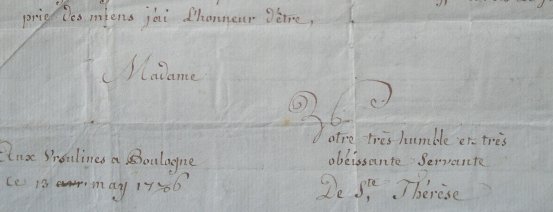 prie des miens j'ai L'honneur d'être,
Madame
Votre très humble et très
obéissante Servante
De S.te Thérèse
Aux Ursulines a Boulogne
Ce 13 avri may 1786